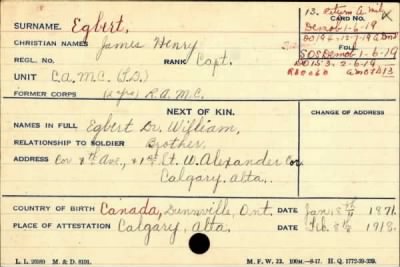 13. Return A.
CARD NO.
Demob 1-6-19
SURNAME. Egbert,
DO 196. 12-7-19
CHRISTIAN NAMES James Henry
FOLL
REGL. NO. RANK Capt.
SOS Demob 1-6-19
UNIT C.A.M.C. (T.D.)
DO 153. 2-6-19
FORMER CORPS R.A.M.C.
NEXT OF KIN.
CHANGE OF ADDRESS
NAMES IN FULL Egbert Dr. William,
RELATIONSHIP TO SOLDIER Brother,
ADDRESS Cor 8th Ave., & 1st St. W. Alexander Cor
Calgary, Alta.
COUNTRY OF BIRTH Canada, Dunnville, Ont. DATE Jan. 8th 1871.
PLACE OF ATTESTATION Calgary, Alta. DATE Feb. 8th 1918.
M. & D. 8191.
M. F. W. 23.